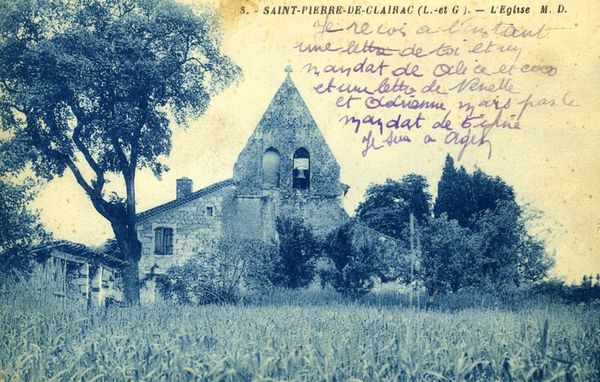 3. - SAINT-PIERRE-DE-CLAIRAC (L.-et G.). — L'Eglise M. D.
Je reçois a l'instant
une lettre de toi et un
mandat de et
et une lettre de
et Adrienne mais pas le
mandat de
Je suis a Agen